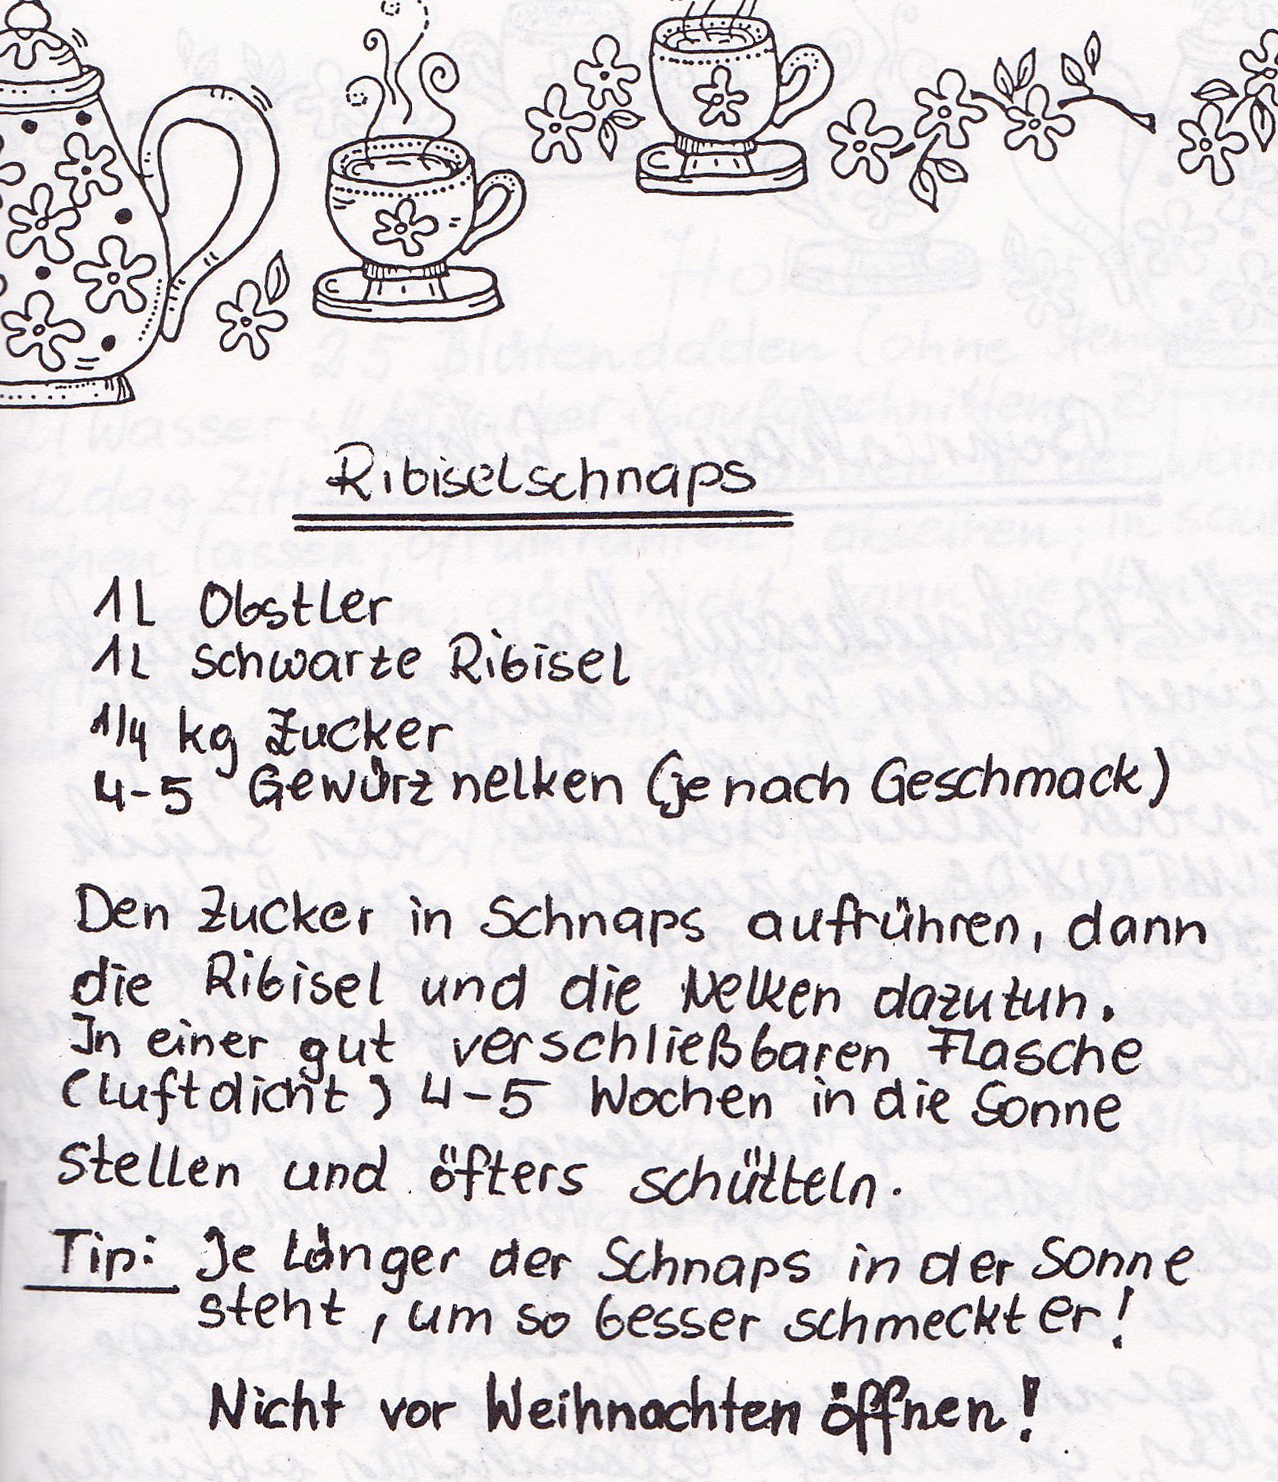 Ribiselschnaps
1L Obstler
1L schwarze Ribisel
1/4 kg Zucker
4-5 Gewürznelken (je nach Geschmack)
Den Zucker in Schnaps aufrühren, dann
die Ribisel und die Nelken dazutun.
In einer gut verschließbaren Flasche
(luftdicht) 4-5 Wochen in die Sonne
stellen und öfters schütteln.
Tip: Je länger der Schnaps in der Sonne
steht, um so besser schmeckt er!
Nicht vor Weihnachten öffnen!